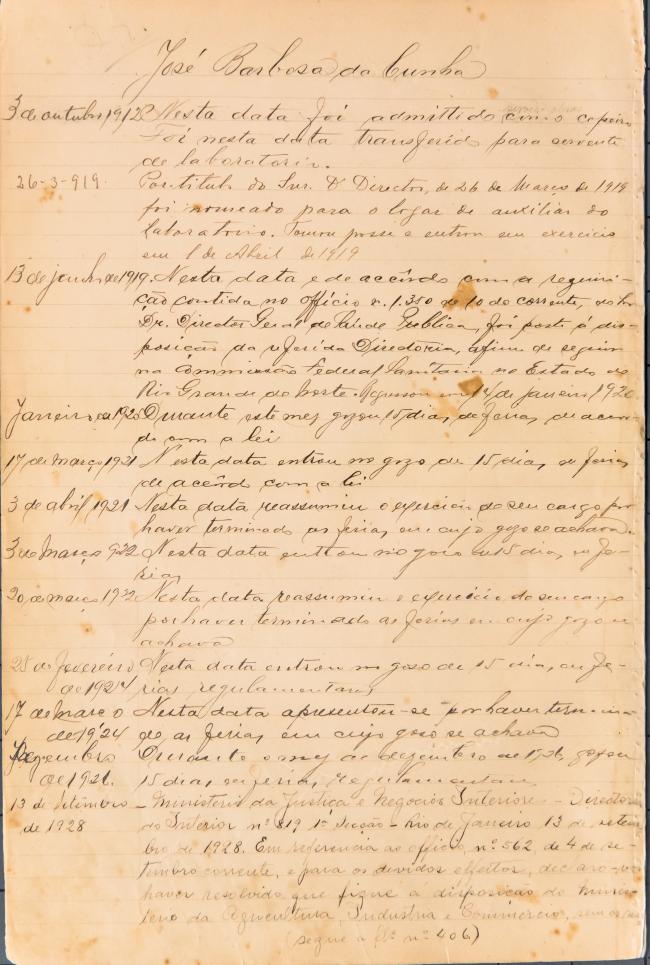 José Barbosa da Cunha
3 de outubro, 1912 Nesta data foi admittido como copeiro
Foi nesta data transferido para servente
de laboratorio.
26-3-919. Por titulo do Snr. Dr Director, de 26 de Março de 1919
foi nomeado para o logar de auxiliar do
laboratorio. Tomou posse e entrou em exercicio
em 1 de Abril de 1919
13 de junho de 1919. Nesta data e de accôrdo com a requisi-
ção contida no officio n. 1.350 de 10 do corrente, do
Dr. Director Geral de Saude Publica, foi posto á dis-
posição da referida Directoria, afim de seguir
na Commissão Federal Sanitaria no Estado do
Rio Grande do Norte. Regressou em 14 de janeiro 1920
Janeiro de 1920 Durante este mez gozou 15 dias, de ferias, de accor-
do com a lei
17 de Março 1921 Nesta data entrou no gozo de 15 dias, de ferias
de accôrdo com a lei
3 de abril 1921 Nesta data reassumiu o exercicio do seu cargo por
haver terminado as ferias, em cujo gozo se achava.
3 de Março 922 Nesta data entrou no goso de 15 dias, de fe-
rias
20, de março 1922 Nesta data reassumiu o exercicio do seu cargo
por haver terminado as ferias em cujo gozo se
achava
25 de Fevereiro Nesta data entrou no goso de 15 dias, de fe-
de 1924 rias regulamentares
17 de Março Nesta data apresentou-se por haver termina-
de 1924 do as ferias em cujo goso se achava
Dezembro Durante o mez de dezembro de 1926, gozou
de 1926. 15 dias, de ferias, regulamentares
13 de Setembro - Ministerio da Justiça e Negocios Interiores - Directoria
de 1928 do Interior nº 819 1ª Secção - Rio de Janeiro 13 de setem-
bro de 1928. Em referencia ao officio, nº 562, de 4 de se-
tembro corrente, e para os devidos effeitos, declaro-vos
haver resolvido que fique á disposição do Minis-
terio da Agricultura, Industria e Commercio, sem
(segue a fls nº 406)